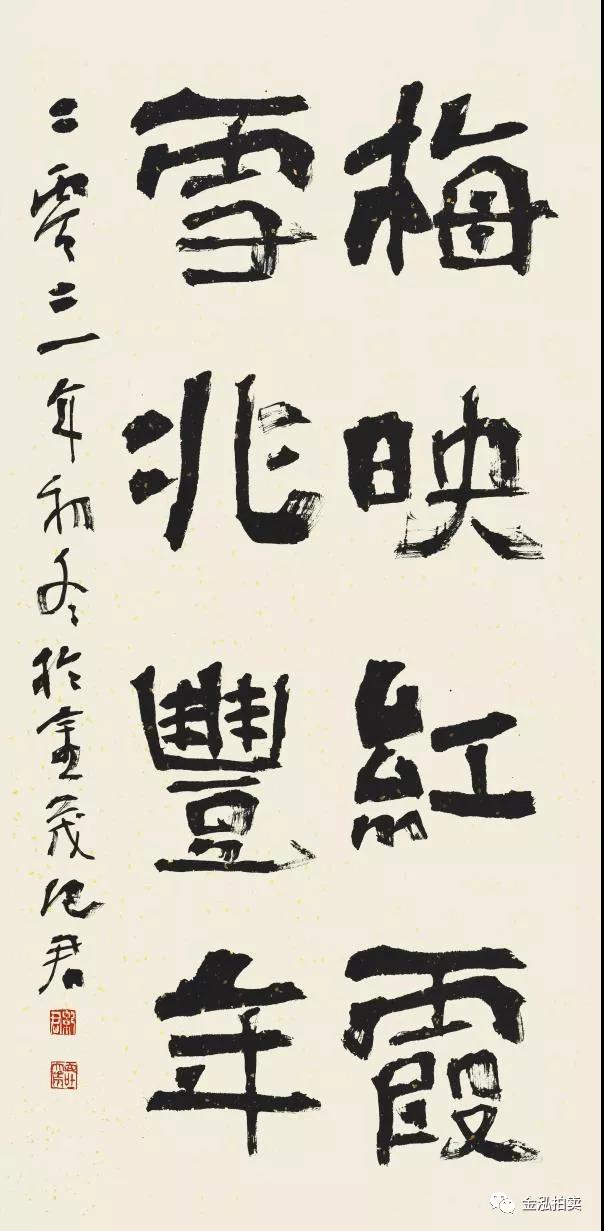 梅映紅霞
雪兆豐年
二零二一年初冬於金茂記君
金泓拍卖